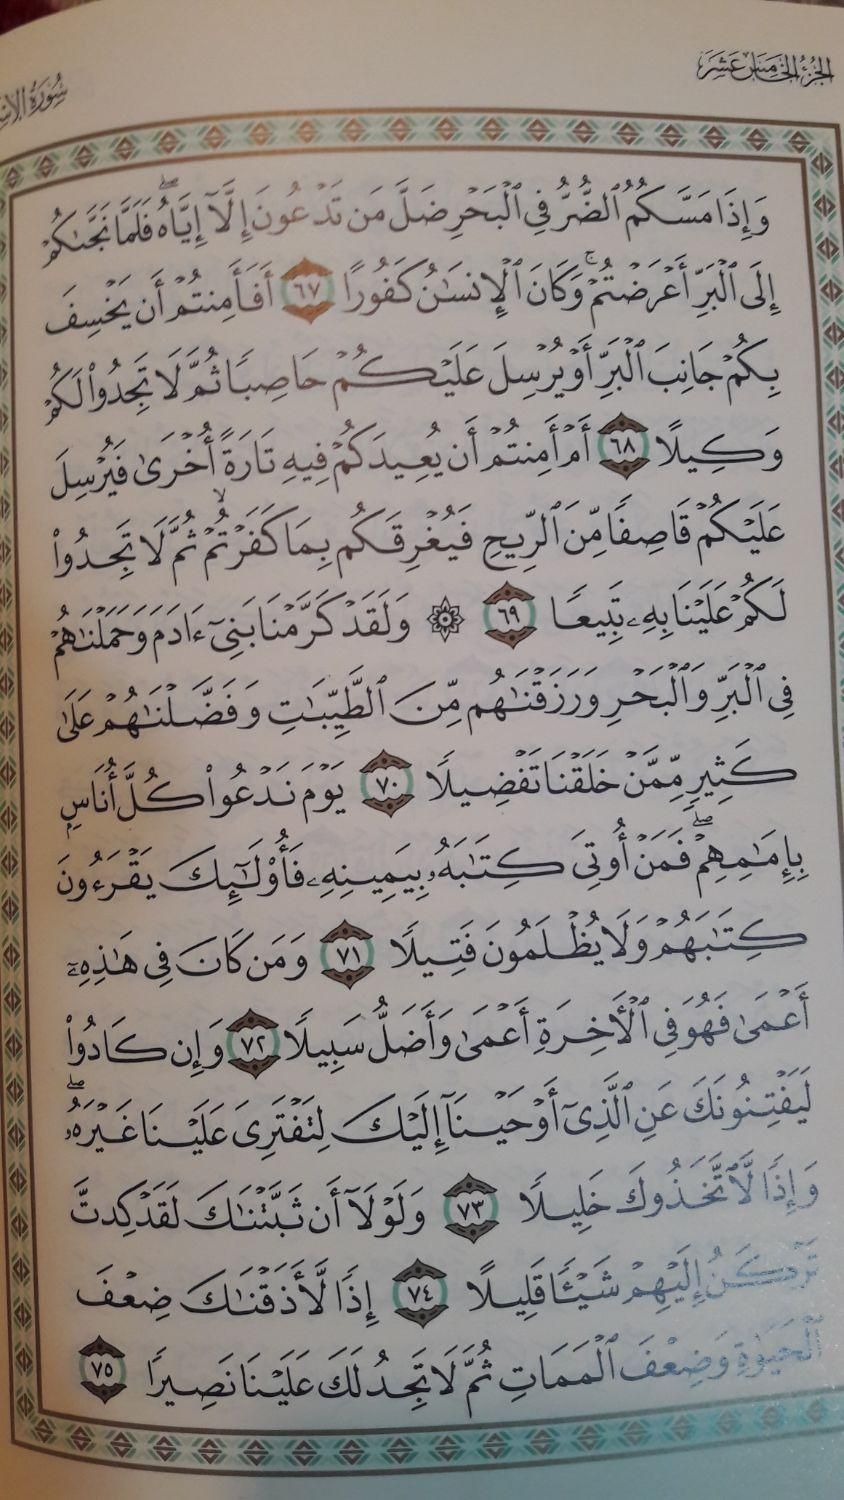 الجزء الخامس عشر
سورة الإس
وَإِذَا مَسَّكُمُ ٱلضُّرُّ فِي ٱلۡبَحۡرِ ضَلَّ مَن تَدۡعُونَ إِلَّآ إِيَّاهُۖ فَلَمَّا نَجَّىٰكُمۡ
إِلَى ٱلۡبَرِّ أَعۡرَضۡتُمۡۚ وَكَانَ ٱلۡإِنسَٰنُ كَفُورًا ٦٧ أَفَأَمِنتُمۡ أَن يَخۡسِفَ
بِكُمۡ جَانِبَ ٱلۡبَرِّ أَوۡ يُرۡسِلَ عَلَيۡكُمۡ حَاصِبٗا ثُمَّ لَا تَجِدُواْ لَكُمۡ
وَكِيلًا ٦٨ أَمۡ أَمِنتُمۡ أَن يُعِيدَكُمۡ فِيهِ تَارَةً أُخۡرَىٰ فَيُرۡسِلَ
عَلَيۡكُمۡ قَاصِفٗا مِّنَ ٱلرِّيحِ فَيُغۡرِقَكُم بِمَا كَفَرۡتُمۡ ثُمَّ لَا تَجِدُواْ
لَكُمۡ عَلَيۡنَا بِهِۦ تَبِيعٗا ٦٩ ۞ وَلَقَدۡ كَرَّمۡنَا بَنِيٓ ءَادَمَ وَحَمَلۡنَٰهُمۡ
فِي ٱلۡبَرِّ وَٱلۡبَحۡرِ وَرَزَقۡنَٰهُم مِّنَ ٱلطَّيِّبَٰتِ وَفَضَّلۡنَٰهُمۡ عَلَىٰ
كَثِيرٖ مِّمَّنۡ خَلَقۡنَا تَفۡضِيلٗا ٧٠ يَوۡمَ نَدۡعُواْ كُلَّ أُنَاسِۭ
بِإِمَٰمِهِمۡۖ فَمَنۡ أُوتِيَ كِتَٰبَهُۥ بِيَمِينِهِۦ فَأُوْلَٰٓئِكَ يَقۡرَءُونَ
كِتَٰبَهُمۡ وَلَا يُظۡلَمُونَ فَتِيلٗا ٧١ وَمَن كَانَ فِي هَٰذِهِۦٓ
أَعۡمَىٰ فَهُوَ فِي ٱلۡأٓخِرَةِ أَعۡمَىٰ وَأَضَلُّ سَبِيلٗا ٧٢ وَإِن كَادُواْ
لَيَفۡتِنُونَكَ عَنِ ٱلَّذِيٓ أَوۡحَيۡنَآ إِلَيۡكَ لِتَفۡتَرِيَ عَلَيۡنَا غَيۡرَهُۥۖ
وَإِذٗا لَّٱتَّخَذُوكَ خَلِيلٗا ٧٣ وَلَوۡلَآ أَن ثَبَّتۡنَٰكَ لَقَدۡ كِدتَّ
تَرۡكَنُ إِلَيۡهِمۡ شَيۡـٔٗا قَلِيلًا ٧٤ إِذٗا لَّأَذَقۡنَٰكَ ضِعۡفَ
ٱلۡحَيَوٰةِ وَضِعۡفَ ٱلۡمَمَاتِ ثُمَّ لَا تَجِدُ لَكَ عَلَيۡنَا نَصِيرٗا ٧٥